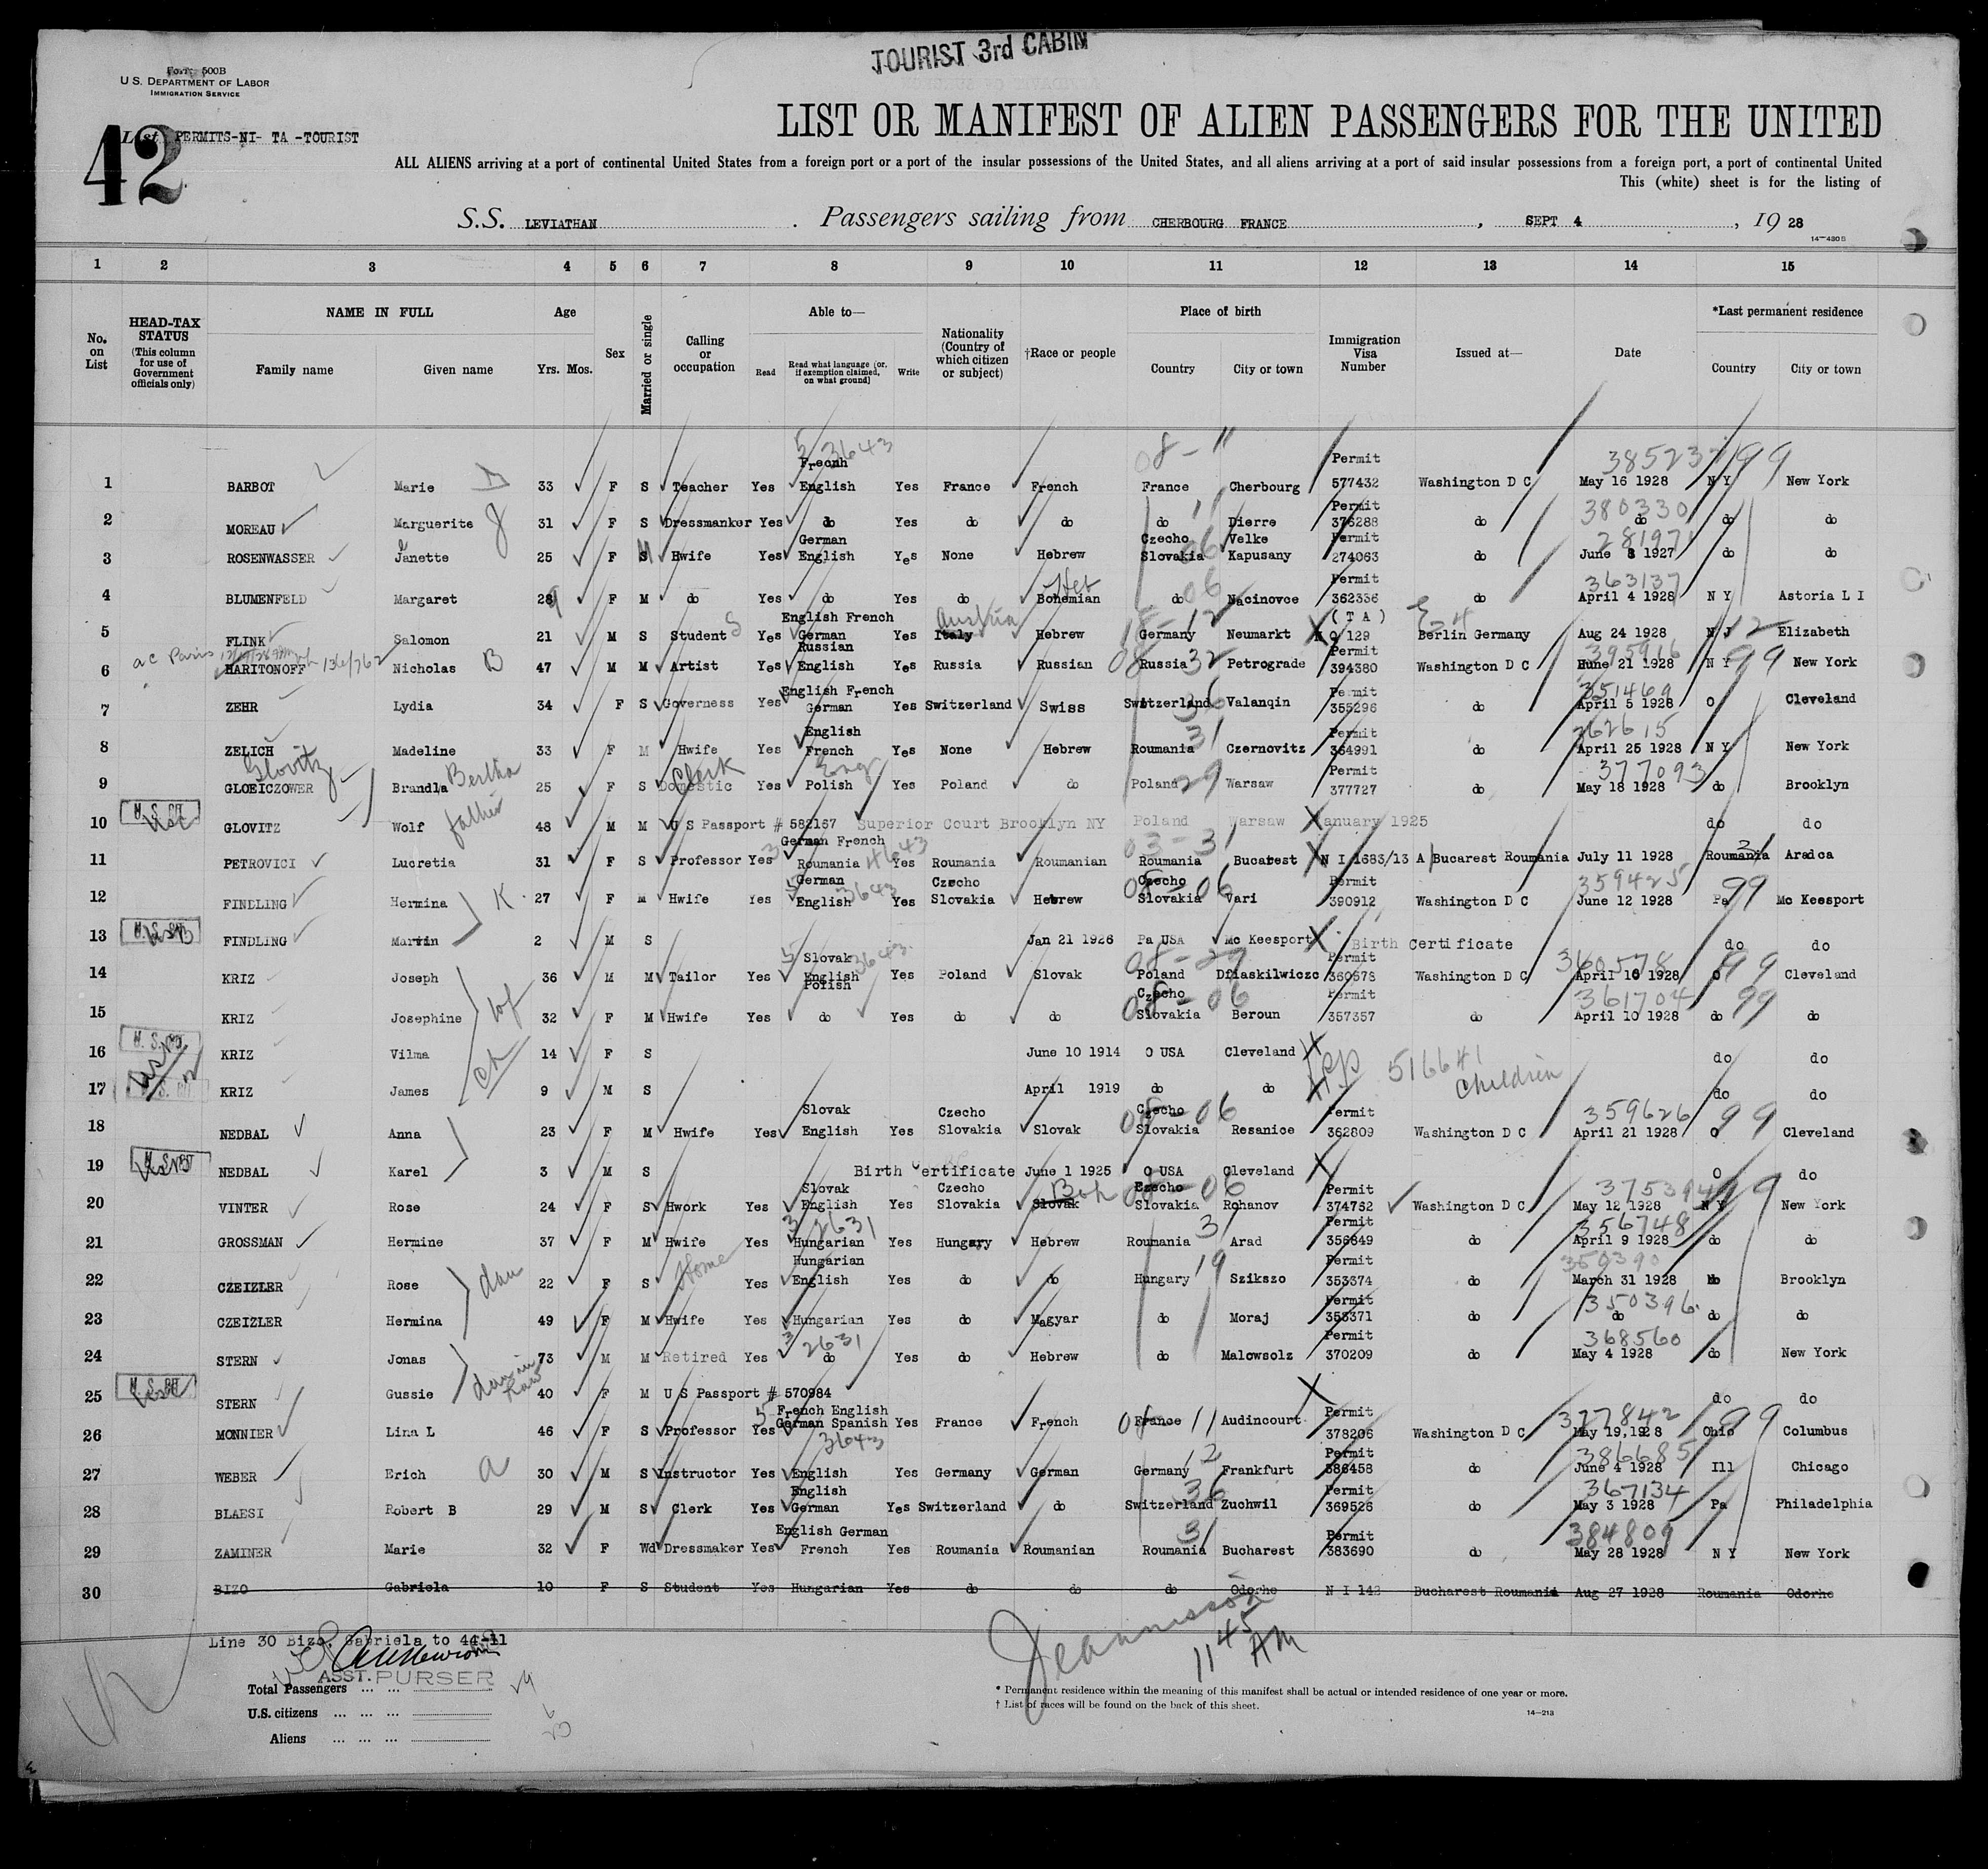 TOURIST 3rd CABIN
Form 500B
U.S. DEPARTMENT OF LABOR
IMMIGRATION SERVICE
LIST OR MANIFEST OF ALIEN PASSENGERS FOR THE UNITED
List PERMITS-NI- TA -TOURIST
42
ALL ALIENS arriving at a port of continental United States from a foreign port or a port of the insular possessions of the United States, and all aliens arriving at a port of said insular possessions from a foreign port, a port of continental United
This (white) sheet is for the listing of
S.S. LEVIATHAN . Passengers sailing from CHERBOURG FRANCE , SEPT 4 , 19 28
14-430B
1 2 3 4 5 6 7 8 9 10 11 12 13 14 15
No. on List
HEAD-TAX STATUS (This column for use of Government officials only)
NAME IN FULL Family name Given name
Age Yrs. Mos.
Sex
Married or single
Calling or occupation
Able to— Read Read what language (or, if exemption claimed, on what ground) Write
Nationality (Country of which citizen or subject)
†Race or people
Place of birth Country City or town
Immigration Visa Number
Issued at—
Date
*Last permanent residence Country City or town
53643 08-11 385237 99
1 BARBOT Marie D 33 F S Teacher Yes Frecnh English Yes France French France Cherbourg Permit 577432 Washington D C May 16 1928 N Y New York
380330
2 MOREAU Marguerite 31 F S Dressmanker Yes do Yes do do do 11 Dierre Permit 376288 do do do do
281971
3 ROSENWASSER Janette 25 F S M Hwife Yes German English Yes None Hebrew Czecho Slovakia 06 Velke Kapusany Permit 274063 do June 8 1927 do do
363137
4 BLUMENFELD Margaret 28 9 F M do Yes do Yes do Bohemian Heb do 06 Nacinovce Permit 362336 do April 4 1928 N Y Astoria L I
5 FLINK Salomon 21 M S Student S Yes English French German Yes Italy Austria Hebrew Germany 12 Neumarkt (T A) 129 Berlin Germany Aug 24 1928 N J 12 Elizabeth
ac Paris 136/762 395916
6 HARITONOFF Nicholas B 47 M M Artist Yes Russian English Yes Russia Russian Russia 32 Petrograde Permit 394380 Washington D C Hune 21 1928 N Y 99 New York
351469
7 ZEHR Lydia 34 F S Governess Yes English French German Yes Switzerland Swiss Switzerland 36 Valanqin Permit 355296 do April 5 1928 O Cleveland
362615
8 ZELICH Madeline 33 F M Hwife Yes English French Yes None Hebrew Roumania 31 Czernovitz Permit 364991 do April 25 1928 N Y New York
Glovitz Bertha Clerk Eng 377093
9 GLOEICZOWER Brandla 25 F S Domestic Yes Polish Yes Poland do Poland 29 Warsaw Permit 377727 do May 18 1928 do Brooklyn
10 GLOVITZ Wolf father 48 M M U S Passport # 582167 Superior Court Brooklyn NY Poland Warsaw January 1925 do do
11 PETROVICI Lucretia 31 F S Professor Yes German French Roumania Yes Roumania Roumanian 03-31 Roumania Bucarest N I 1683/13 A Bucarest Roumania July 11 1928 Roumania Aradca
359425
12 FINDLING Hermina K. 27 F M Hwife Yes German English 53643 Yes Czecho Slovakia Hebrew Czecho Slovakia 08-06 Vari Permit 390912 Washington D C June 12 1928 Pa 99 Mc Keesport
13 FINDLING Martin 2 M S Jan 21 1926 Pa USA Mc Keesport Birth Certificate do do
360578
14 KRIZ Joseph 36 M M Tailor Yes Slovak English Polish 53643 Yes Poland Slovak 08-29 Poland Permit 360678 Washington D C April 10 1928 O 99 Cleveland
361704
15 KRIZ Josephine wf 32 F M Hwife Yes do Yes do do Czecho Slovakia 08-06 Beroun Permit 357357 do April 10 1928 do 99 do
16 KRIZ Vilma ch 14 F S June 10 1914 O USA Cleveland do do
PP 516641 children
17 KRIZ James 9 M S April 1919 do do do do
359626
18 NEDBAL Anna 23 F M Hwife Yes Slovak English Yes Czecho Slovakia Slovak Czecho Slovakia 08-06 Resanice Permit 362809 Washington D C April 21 1928 O 99 Cleveland
19 NEDBAL Karel 3 M S Birth Certificate June 1 1925 O USA Cleveland O do
375394
20 VINTER Rose 24 F S Hwork Yes Slovak English Yes Czecho Slovakia Slovak Boh Czecho Slovakia 08-06 Rohanov Permit 374752 Washington D C May 12 1928 N Y 99 New York
356748
21 GROSSMAN Hermine 37 F M Hwife Yes 32631 Hungarian Yes Hungary Hebrew Roumania 3 Arad Permit 356849 do April 9 1928 do do
350390
22 CZEIZLER Rose dau 22 F S Home Yes Hungarian English Yes do do Hungary 19 Szikszo Permit 353374 do March 31 1928 do Brooklyn
350396
23 CZEIZLER Hermina 49 F M Hwife Yes Hungarian Yes do Magyar do Moraj Permit 353371 do do do do
368560
24 STERN Jonas 73 M M Retired Yes 32631 do Yes do Hebrew do Malowsolz Permit 370209 do May 4 1928 do New York
25 STERN Gussie dau in law 40 F M U S Passport # 570984 do do
377842
26 MONNIER Lina L 46 F S Professor Yes French English German Spanish 53643 Yes France French 08 France 11 Audincourt Permit 378206 Washington D C May 19,1928 Ohio 99 Columbus
386685
27 WEBER Erich a 30 M S Instructor Yes English Yes Germany German Germany 12 Frankfurt Permit 386458 do June 4 1928 Ill Chicago
367134
28 BLAESI Robert B 29 M S Clerk Yes English German Yes Switzerland do Switzerland 36 Zuchwil Permit 369526 do May 3 1928 Pa Philadelphia
384809
29 ZAMINER Marie 32 F Wd Dressmaker Yes English German French Yes Roumania Roumanian Roumania 31 Bucharest Permit 383690 do May 28 1928 N Y New York
30 BIZO Gabriela 10 F S Student Yes Hungarian Yes do do do Odorhe N I 142 Bucharest Roumania Aug 27 1928 Roumania Odorhe
Line 30 Bizo, Gabriela to 44-11
11 45 AM
ASST. PURSER
Total Passengers ... ...
U.S. citizens ... ... ...
Aliens ... ... ...
* Permanent residence within the meaning of this manifest shall be actual or intended residence of one year or more.
† List of races will be found on the back of this sheet.
14-213